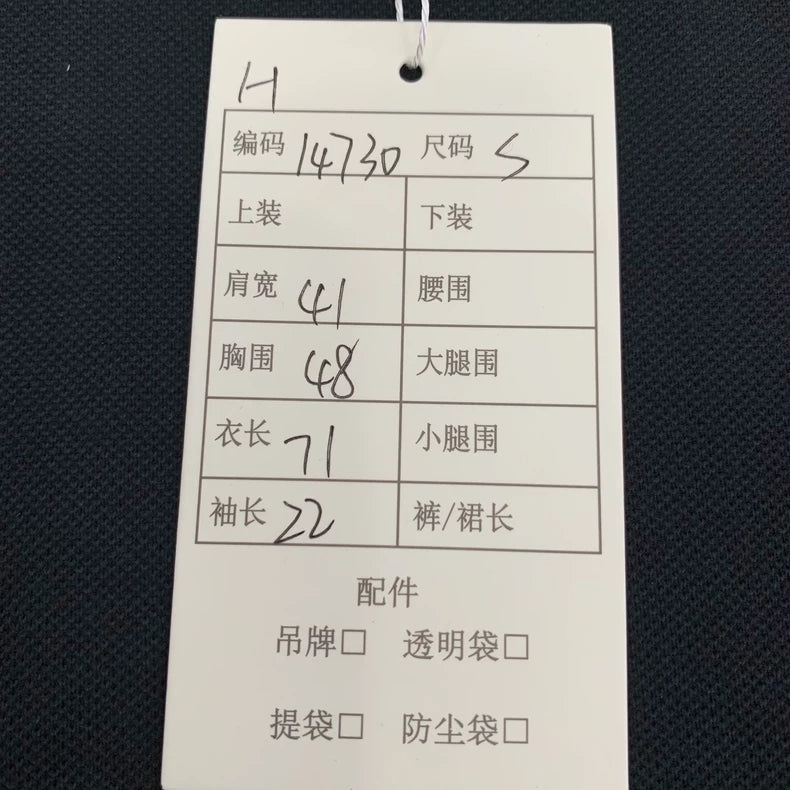 H
编码 14730 尺码 S
上装 下装
肩宽 41 腰围
胸围 48 大腿围
衣长 71 小腿围
袖长 22 裤/裙长
配件
吊牌□ 透明袋□
提袋□ 防尘袋□